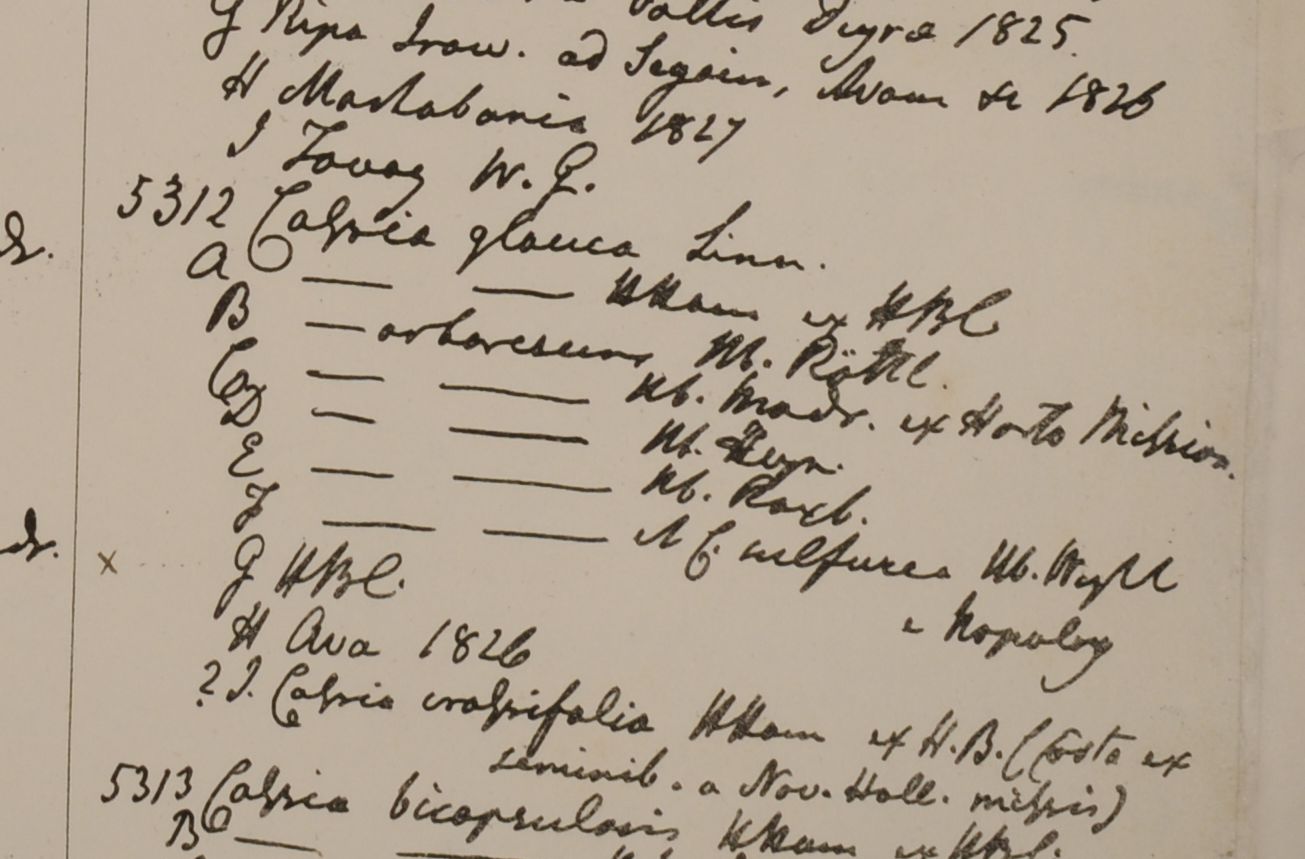 Vallis Deyrae 1825
G Ripa Iraw. ad Segain, Avam &c 1826
H Martabania 1827
I Tavoy W. G.
5312 Cassia glauca Linn.
A — — HHam ex HBC
B — arborescens Hb. Röttl.
C — — Hb. Madr. ex Horto Mission.
D — — Hb. Heyn.
E — — Hb. Roxb.
F — — C. sulfurea Hb. Wight
G HBC. e Nopalay
H Ava 1826
? I. Cassia crassifolia HHam ex H.B. (Costa ex
seminib. a Nov. Holl. missis)
5313 Cassia bicapsularis HHam ex HBC.
B —
dr.
dr.
x